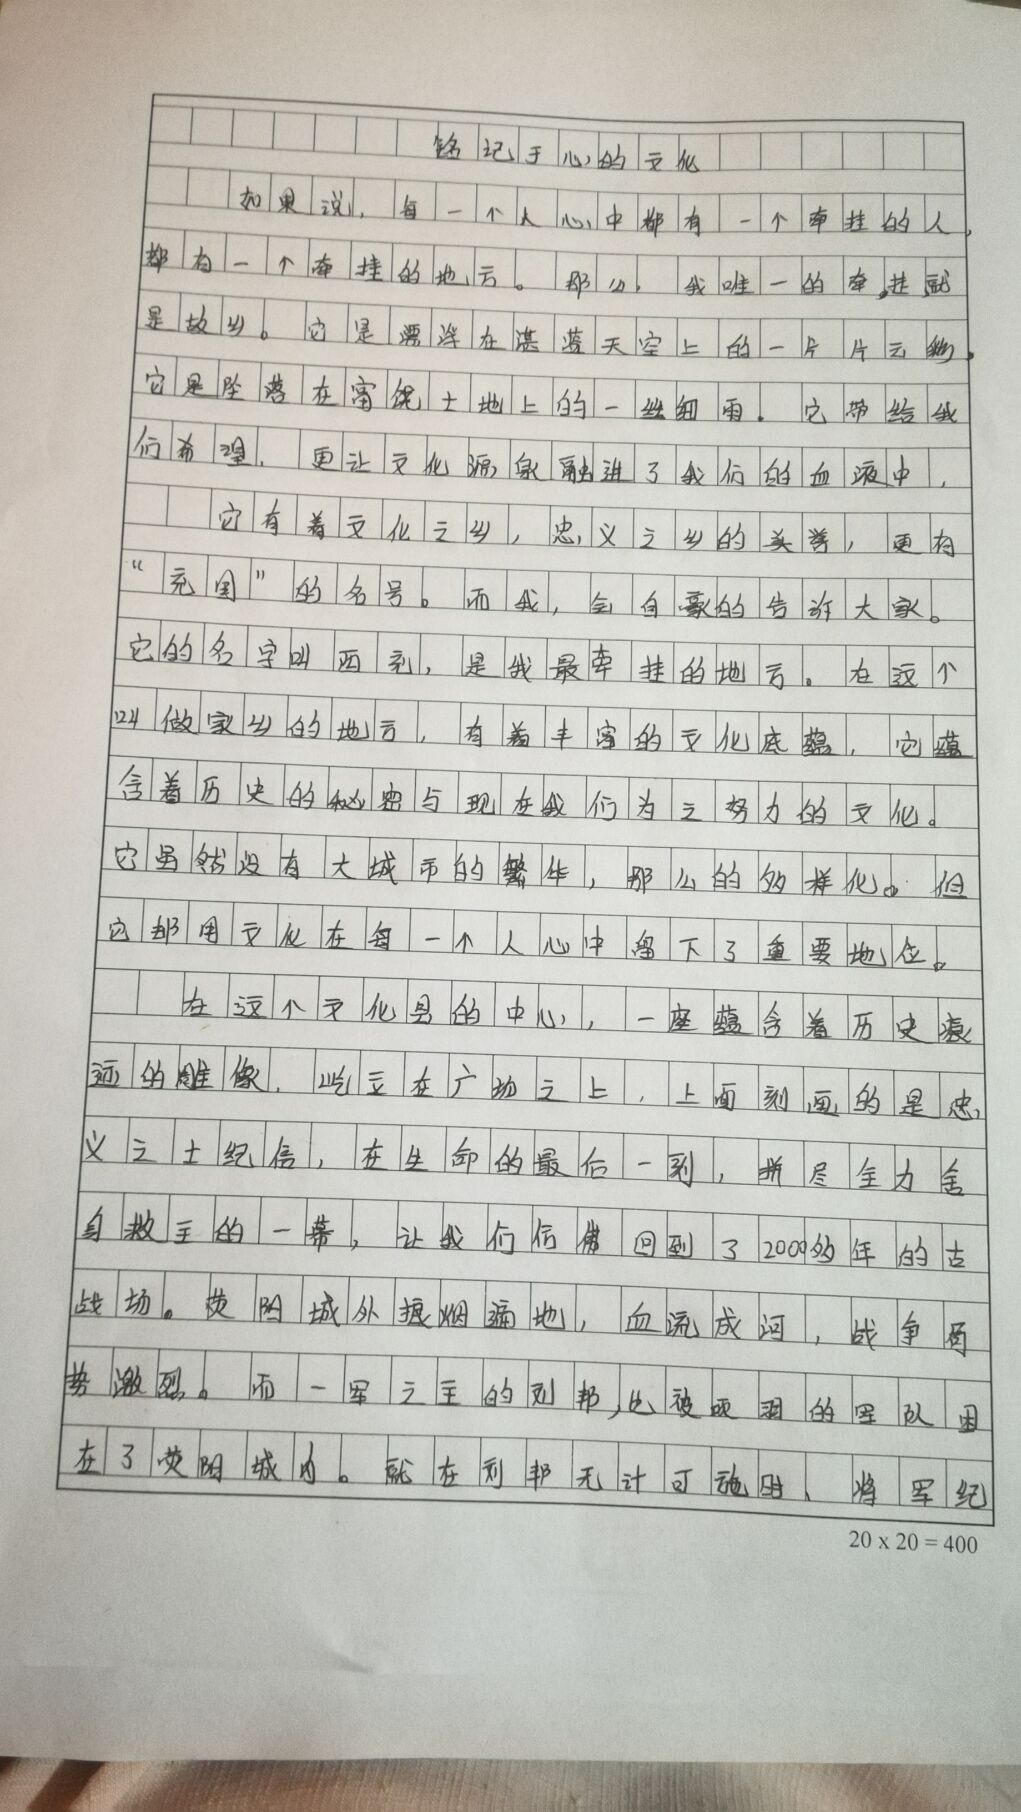 铭记于心的文化
如果说,每一个人心中都有一个牵挂的人,
都有一个牵挂的地方。那么,我唯一的牵挂就
是故乡。它是漂浮在湛蓝天空上的一片片云彩。
它是坠落在富饶土地上的一丝细雨。它带给我
们希望,更让文化源泉融进了我们的血液中,
它有着文化之乡,忠义之乡的美誉,更有
“充国”的名号。而我,会自豪的告诉大家。
它的名字叫西充,是我最牵挂的地方。在这个
叫做家乡的地方,有着丰富的文化底蕴,它蕴
含着历史的秘密与现在我们为之努力的文化。
它虽然没有大城市的繁华,那么的多样化。但
它却用文化在每一个人心中留下了重要地位。
在这个文化县的中心,一座蕴含着历史痕
迹的雕像,屹立在广场之上,上面刻画的是忠
义之士纪信,在生命的最后一刻,拼尽全力舍
身救主的一幕,让我们仿佛回到了2000多年的古
战场。荥阳城外狼烟遍地,血流成河,战争局
势激烈。而一军之主的刘邦,也被项羽的军队困
在了荥阳城内。就在刘邦无计可施时、将军纪
20 x 20 = 400